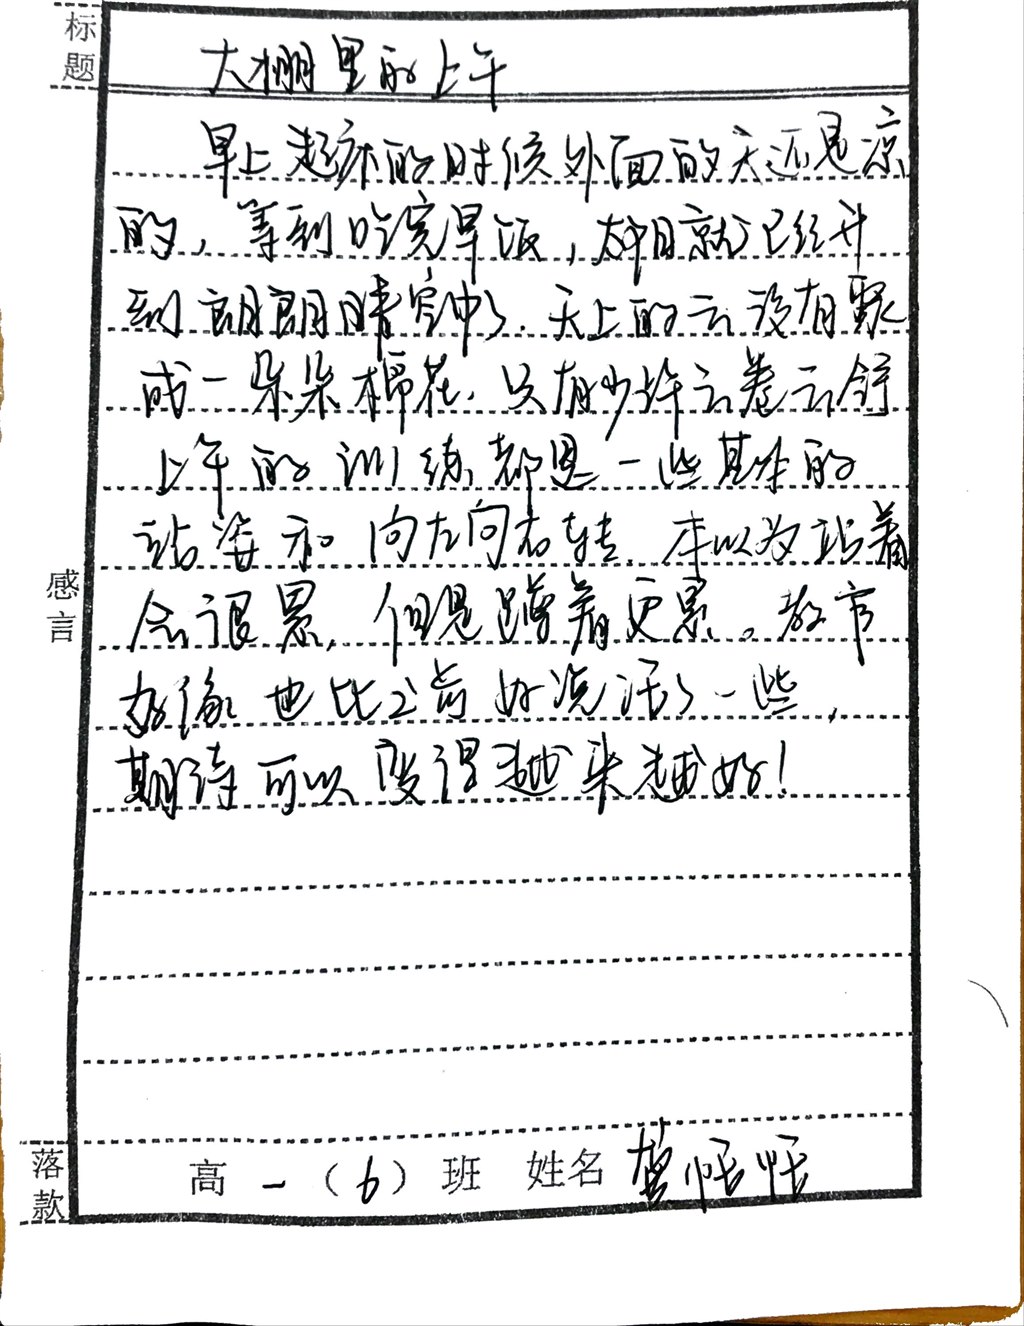 标题 大棚里的上午
早上起床的时候外面的天还是凉
的，等到吃完早饭，太阳就已经升
到朗朗晴空中了．天上的云没有聚
成一朵朵棉花．只有少许云卷云舒
上午的训练都是一些基本的
站姿和向左向右转．本以为站着
感言 会很累，但是蹲着更累。教官
好像也比之前好说话了一些，
期待可以变得越来越好！
落款 高一（6）班 姓名 恬恬